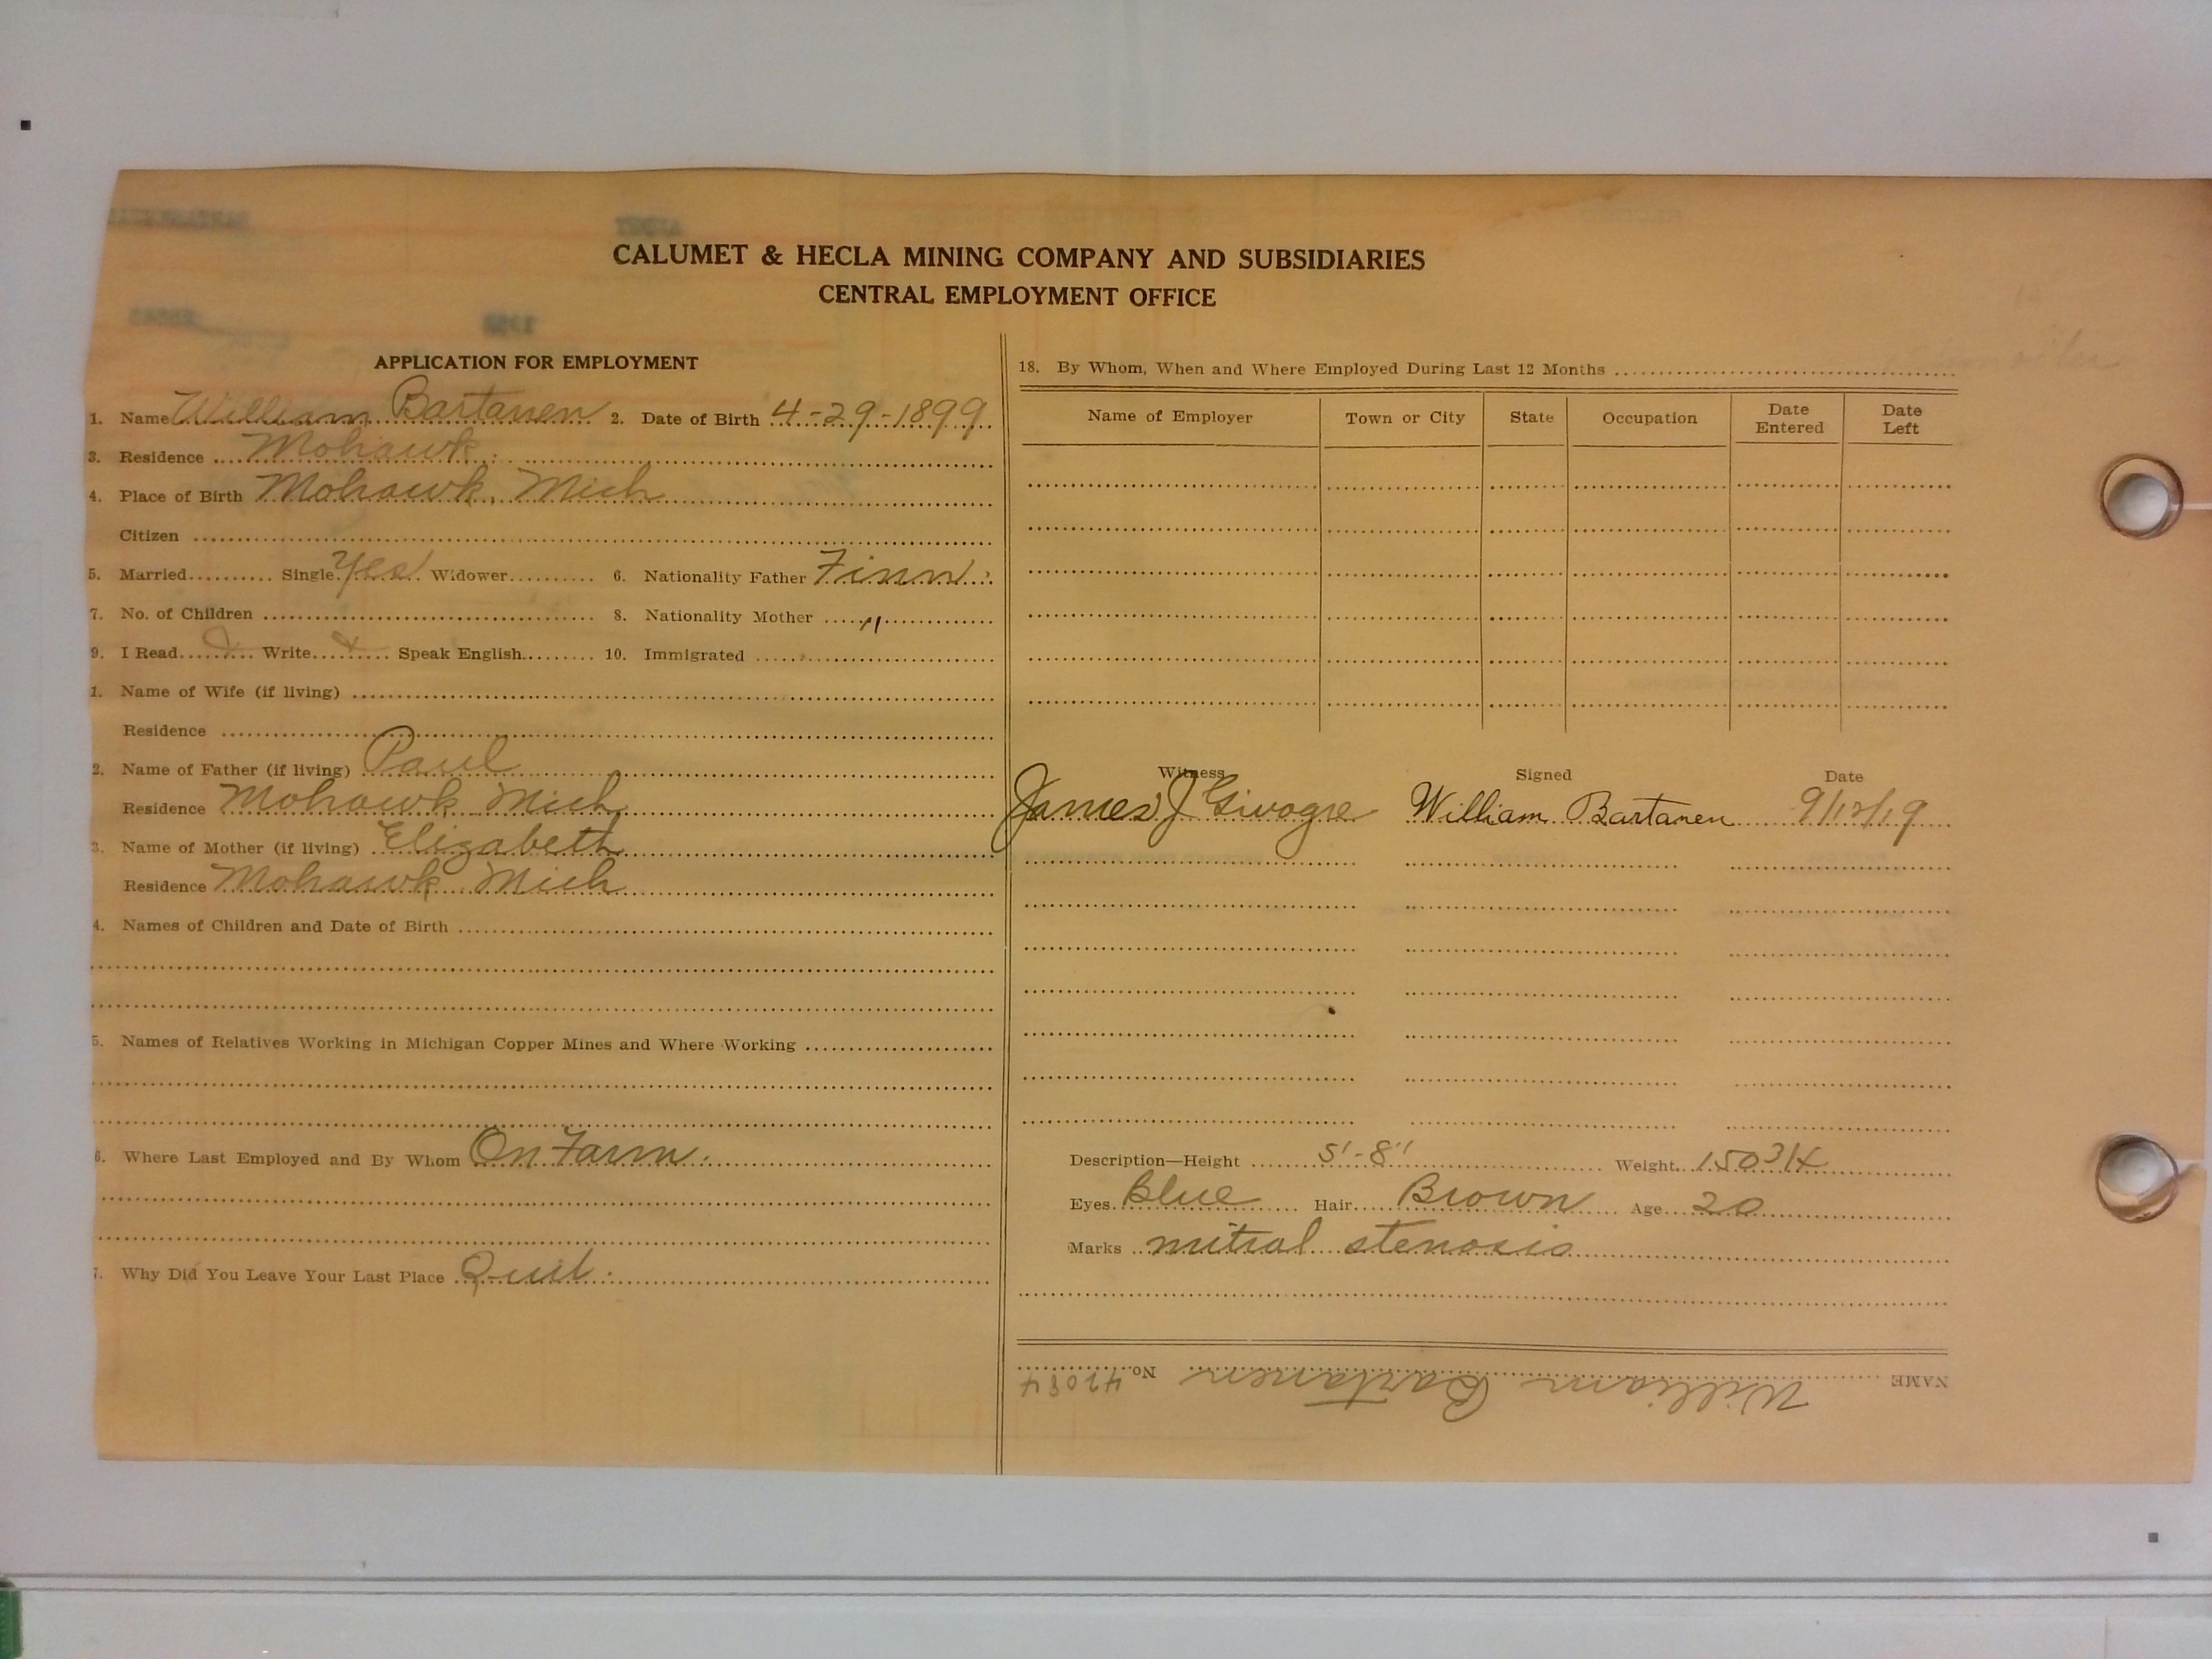 CALUMET & HECLA MINING COMPANY AND SUBSIDIARIES
CENTRAL EMPLOYMENT OFFICE
APPLICATION FOR EMPLOYMENT
1. Name William Bartanen 2. Date of Birth 4-29-1899
3. Residence Mohawk
4. Place of Birth Mohawk, Mich
Citizen
5. Married Single Yes Widower 6. Nationality Father Finn
7. No. of Children 8. Nationality Mother "
9. I Read Write Speak English 10. Immigrated
1. Name of Wife (if living)
Residence
2. Name of Father (if living) Paul
Residence Mohawk Mich
3. Name of Mother (if living) Elizabeth
Residence Mohawk Mich
4. Names of Children and Date of Birth
5. Names of Relatives Working in Michigan Copper Mines and Where Working
6. Where Last Employed and By Whom On Farm.
7. Why Did You Leave Your Last Place Quit.
18. By Whom, When and Where Employed During Last 12 Months
Name of Employer Town or City State Occupation Date Entered Date Left
Witness Signed Date
James J William Bartanen 9/12/19
Description—Height 5'-8" Weight 150 3/4
Eyes Blue Hair Brown Age 20
Marks mitral stenosis
NAME William Bartanen No. 42084